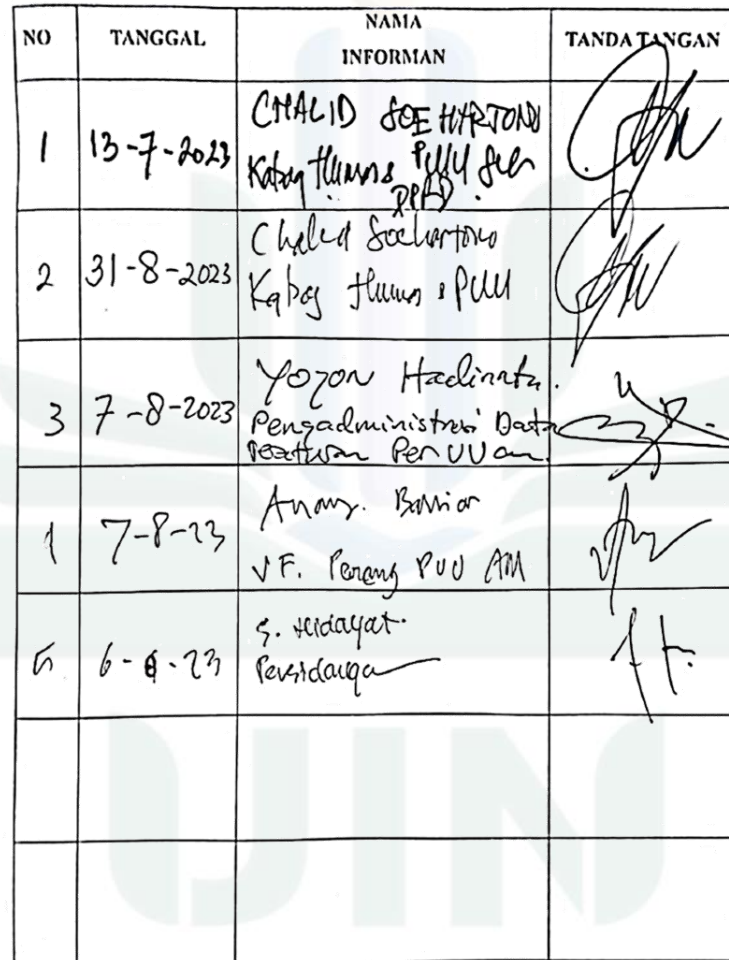 NO TANGGAL NAMA INFORMAN TANDA TANGAN
1 13-7-2023 CHALID SOEHARTONO
Kabag Humas PUU
DPRD
2 31-8-2023 Chalid Soehartono
Kabag Humas PUU
3 7-8-2023 Yozon Hadinata.
Pengadministrasi Data
Peraturan PerUUan.
7-8-23
JF. Perang PUU AM
5 6- -23 S. Hidayat.
Persidangan
UIN